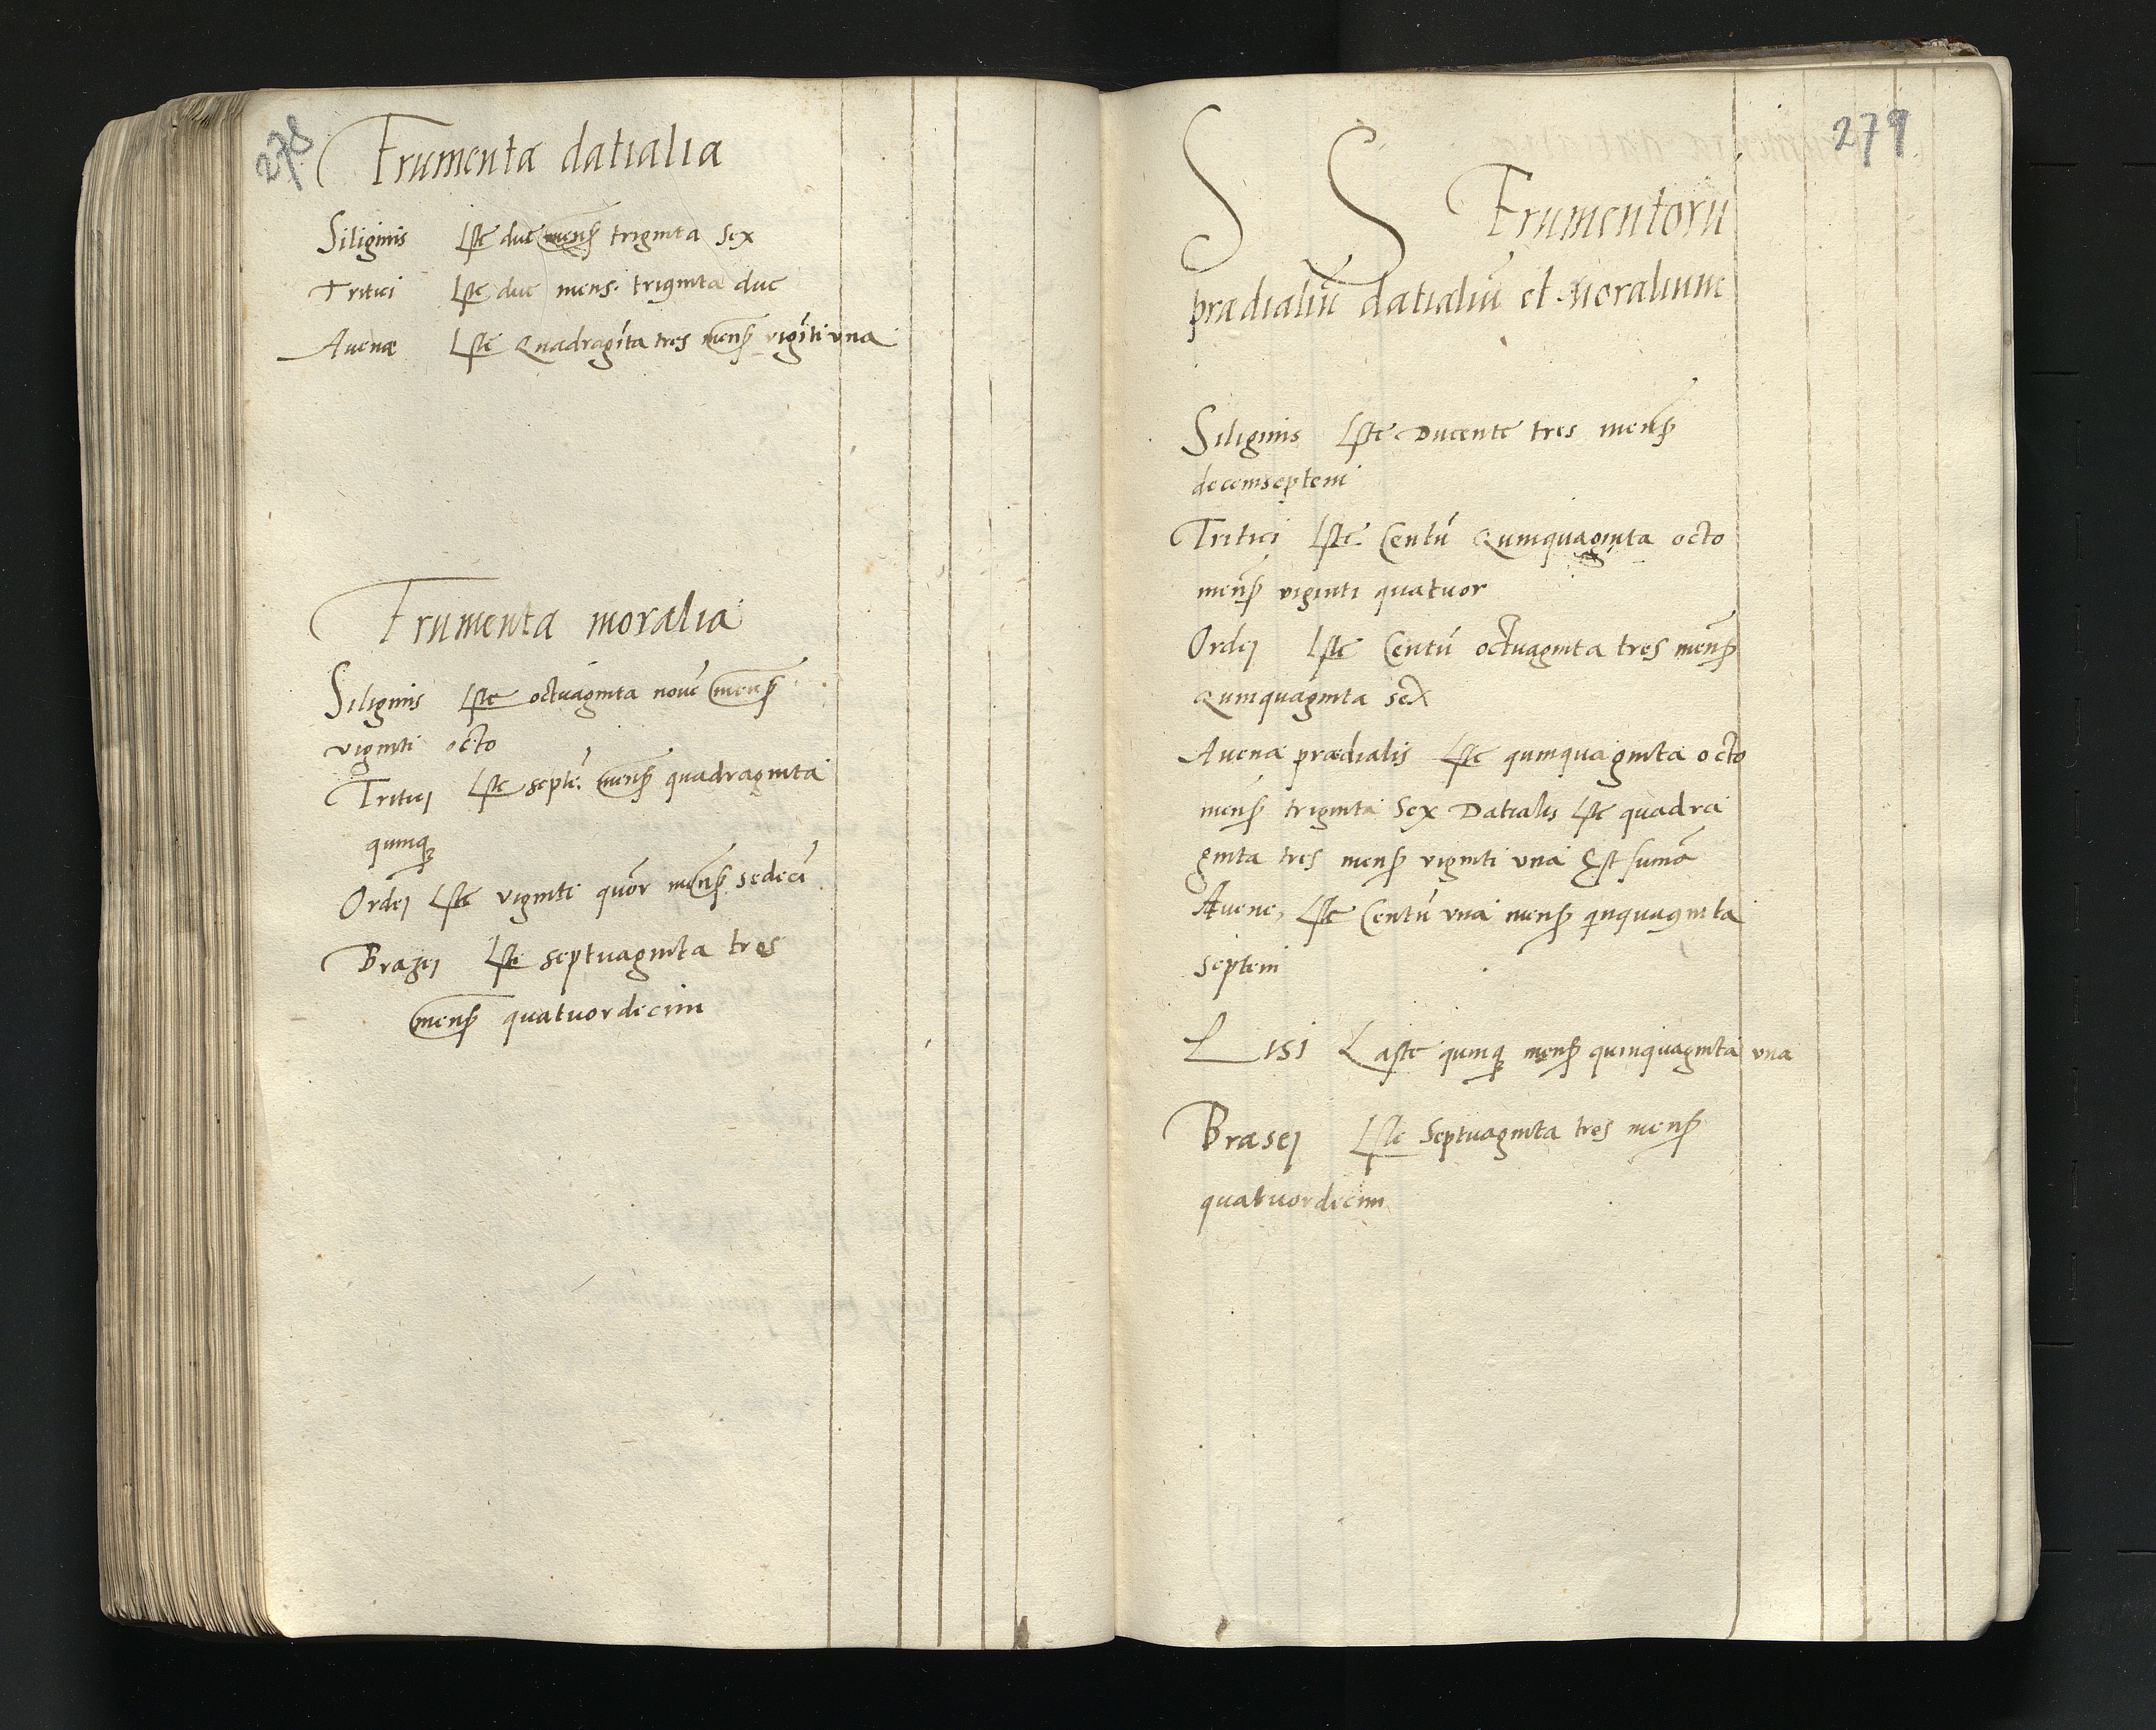 278
Frumenta datialia
Siliginis Lste due mens triginta sex
Tritici Lste due mens. triginta due
Auenæ Lste Quadragīta tres mens vigīti vna
Frumenta moralia
Siliginis Lste octuaginta nouē mens
viginti octo
Triticj Lste septē. mens quadraginta
quinqꝫ
Ordej Lste viginti quōr mens sedecī
Brazej Lste septuaginta tres
mens quatuordecim
279
S S Frumentorū
prædialiū datialiū et moralium
Siliginis Lste Ducente tres mens
decemseptem
Tritici Lste Centū Quinquaginta octo
mens viginti quatuor
Ordej Lste Centū octuaginta tres mens
Quinquaginta sex
Auena prædialis Lste quinquaginta octo
mens triginta Sex Datialis Lste quadra
ginta tres mens viginti vna Est sumā
Auene, Lste Centū vna mens qinquaginta
septem
Pisi Laste quinqꝫ mens quinquaginta vna
Brasej Lste Septuaginta tres mens
quatuordecim